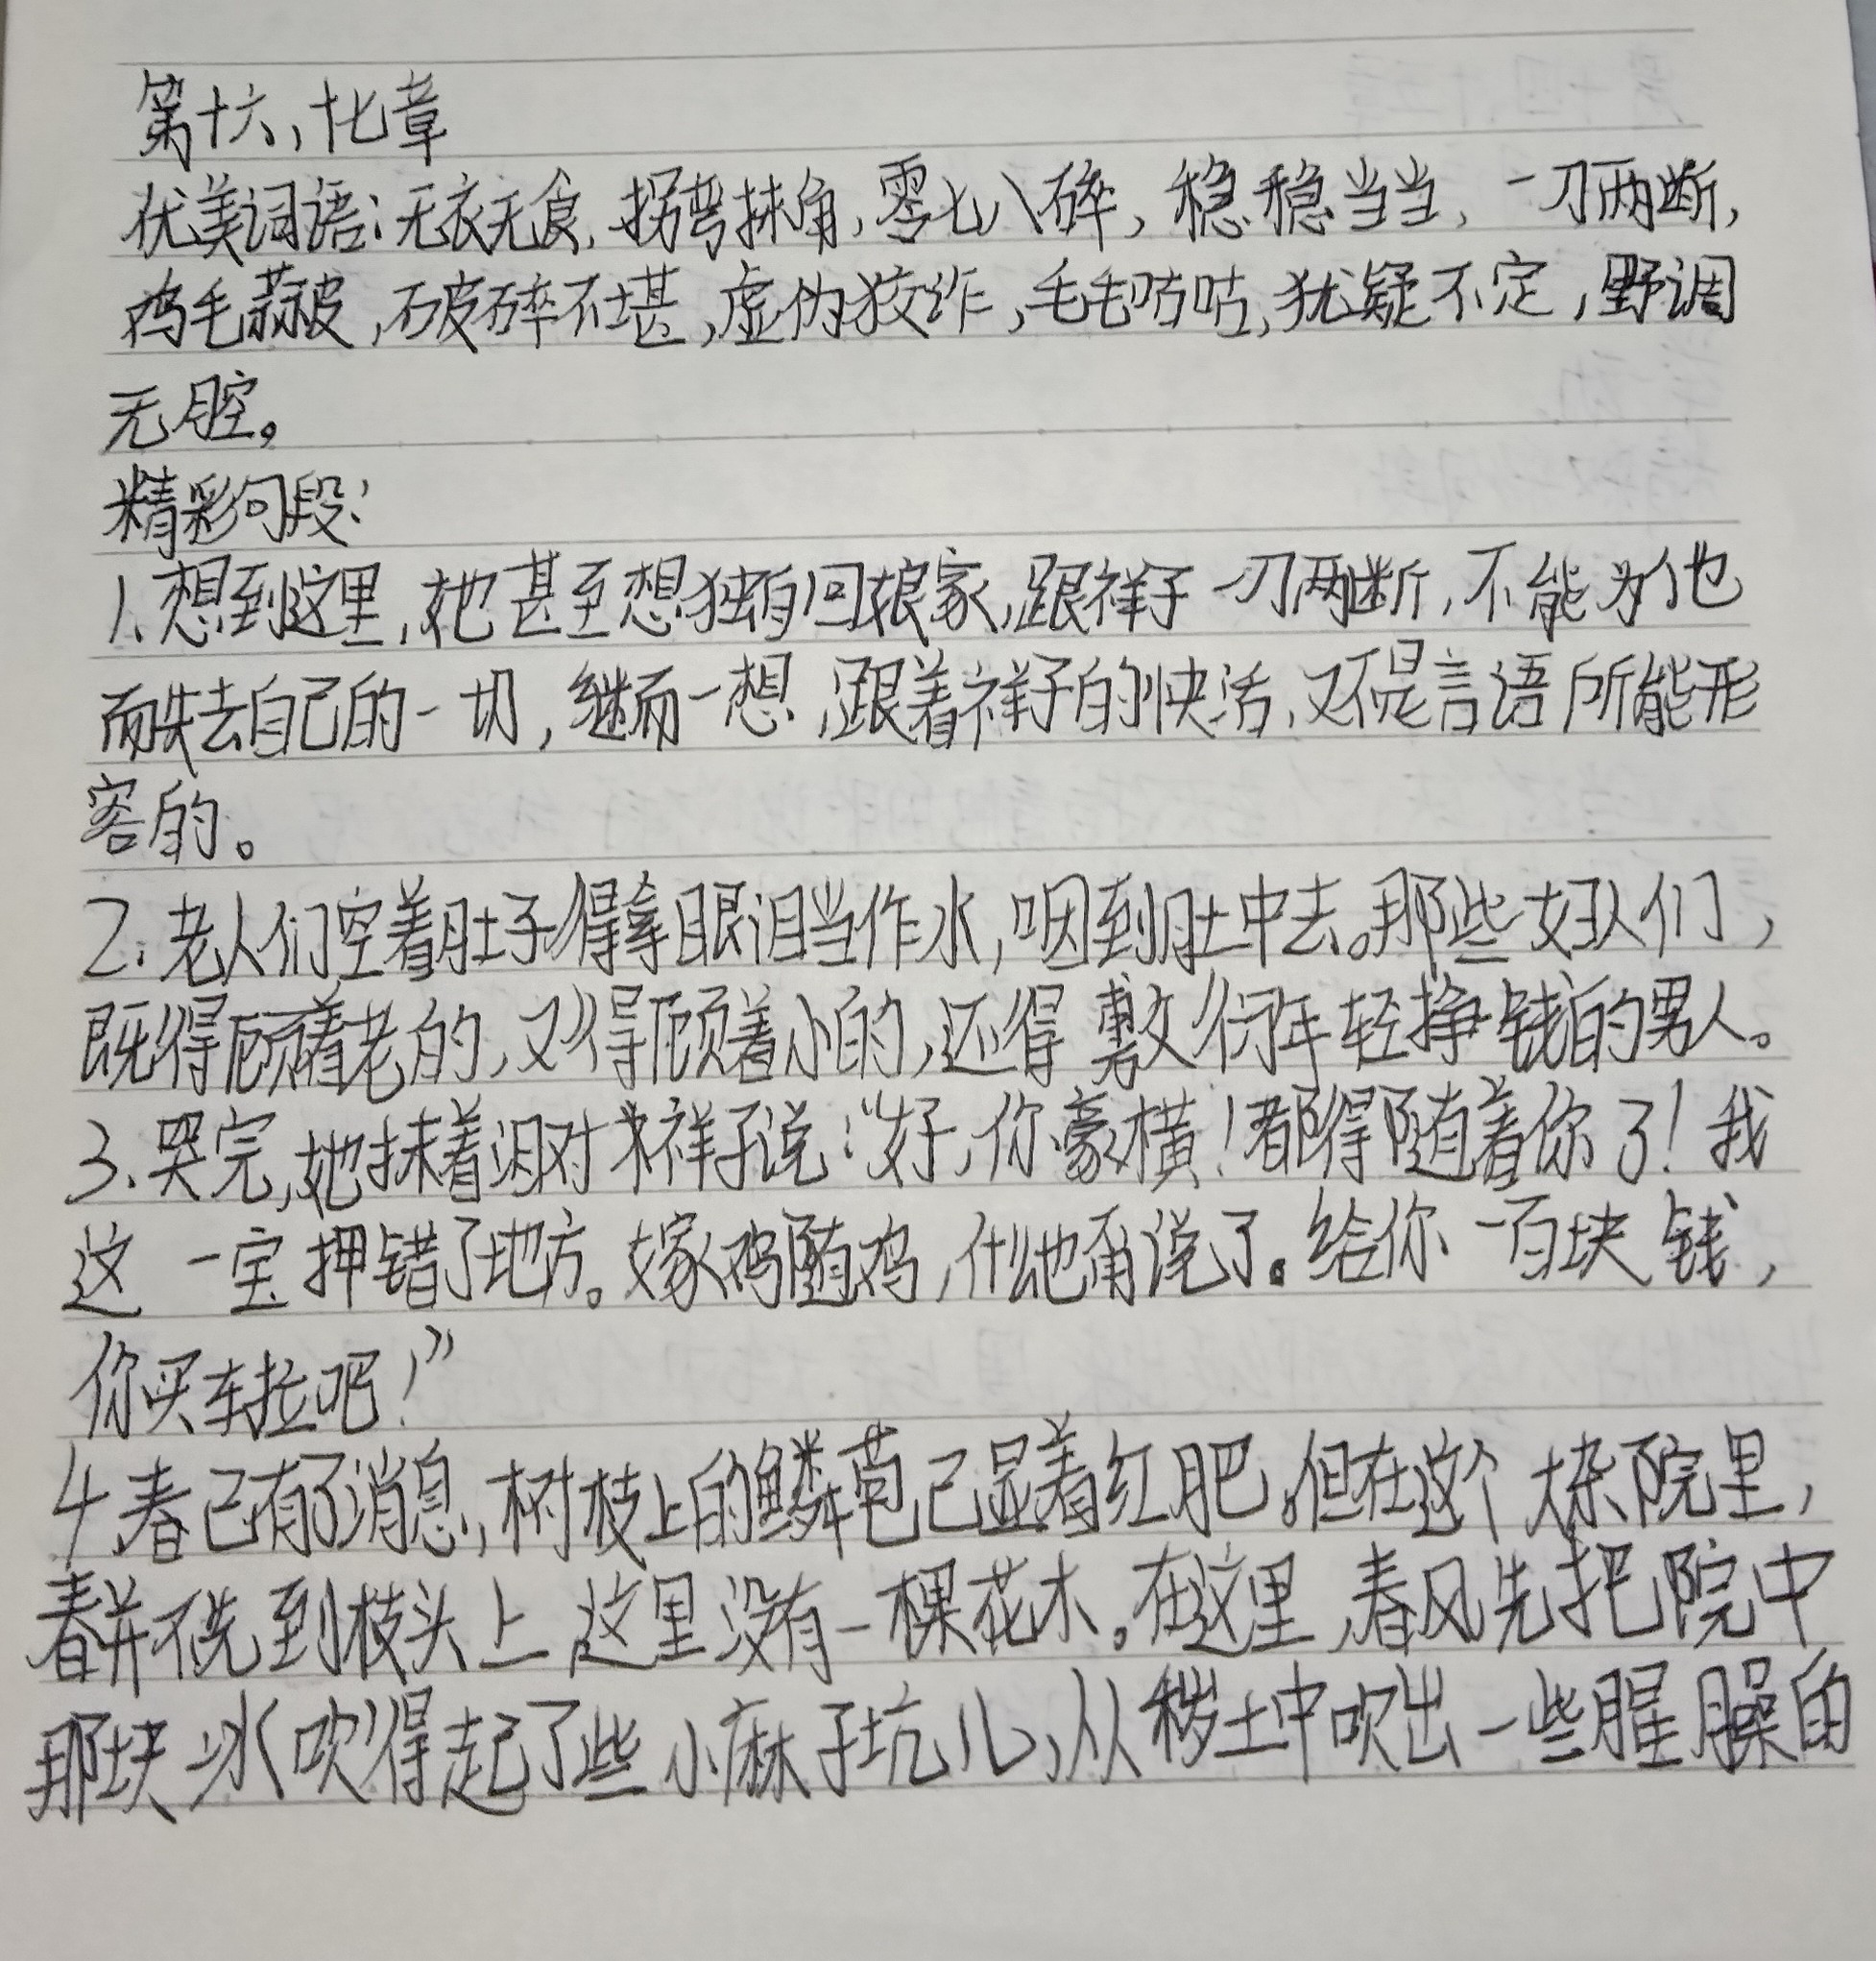 第十六,十七章
优美词语:无衣无食,拐弯抹角,零七八碎,稳稳当当,一刀两断,
鸡毛蒜皮,破碎不堪,虚伪狡诈,毛毛咕咕,犹疑不定,野调
无腔。
精彩句段:
1、想到这里,她甚至想独自回娘家,跟祥子一刀两断,不能为他
而失去自己的一切,继而一想,跟着祥子的快活,又不是言语所能形
容的。
2、老人们空着肚子得拿眼泪当作水,咽到肚中去。那些妇人们,
既得顾着老的,又得顾着小的,还得敷衍年轻挣钱的男人。
3、哭完,她抹着泪对祥子说:“好,你豪横!都得随着你了!我
这一宝押错了地方。嫁鸡随鸡,什么也甭说了。给你一百块钱,
你买车拉吧!”
4,春已有了消息,树枝上的鳞苞已显着红肥。但在这个大杂院里,
春并不先到枝头上,这里没有一棵花木。在这里,春风先把院中
那块冰吹得起了些小麻子坑儿,从秽土中吹出一些腥臊的